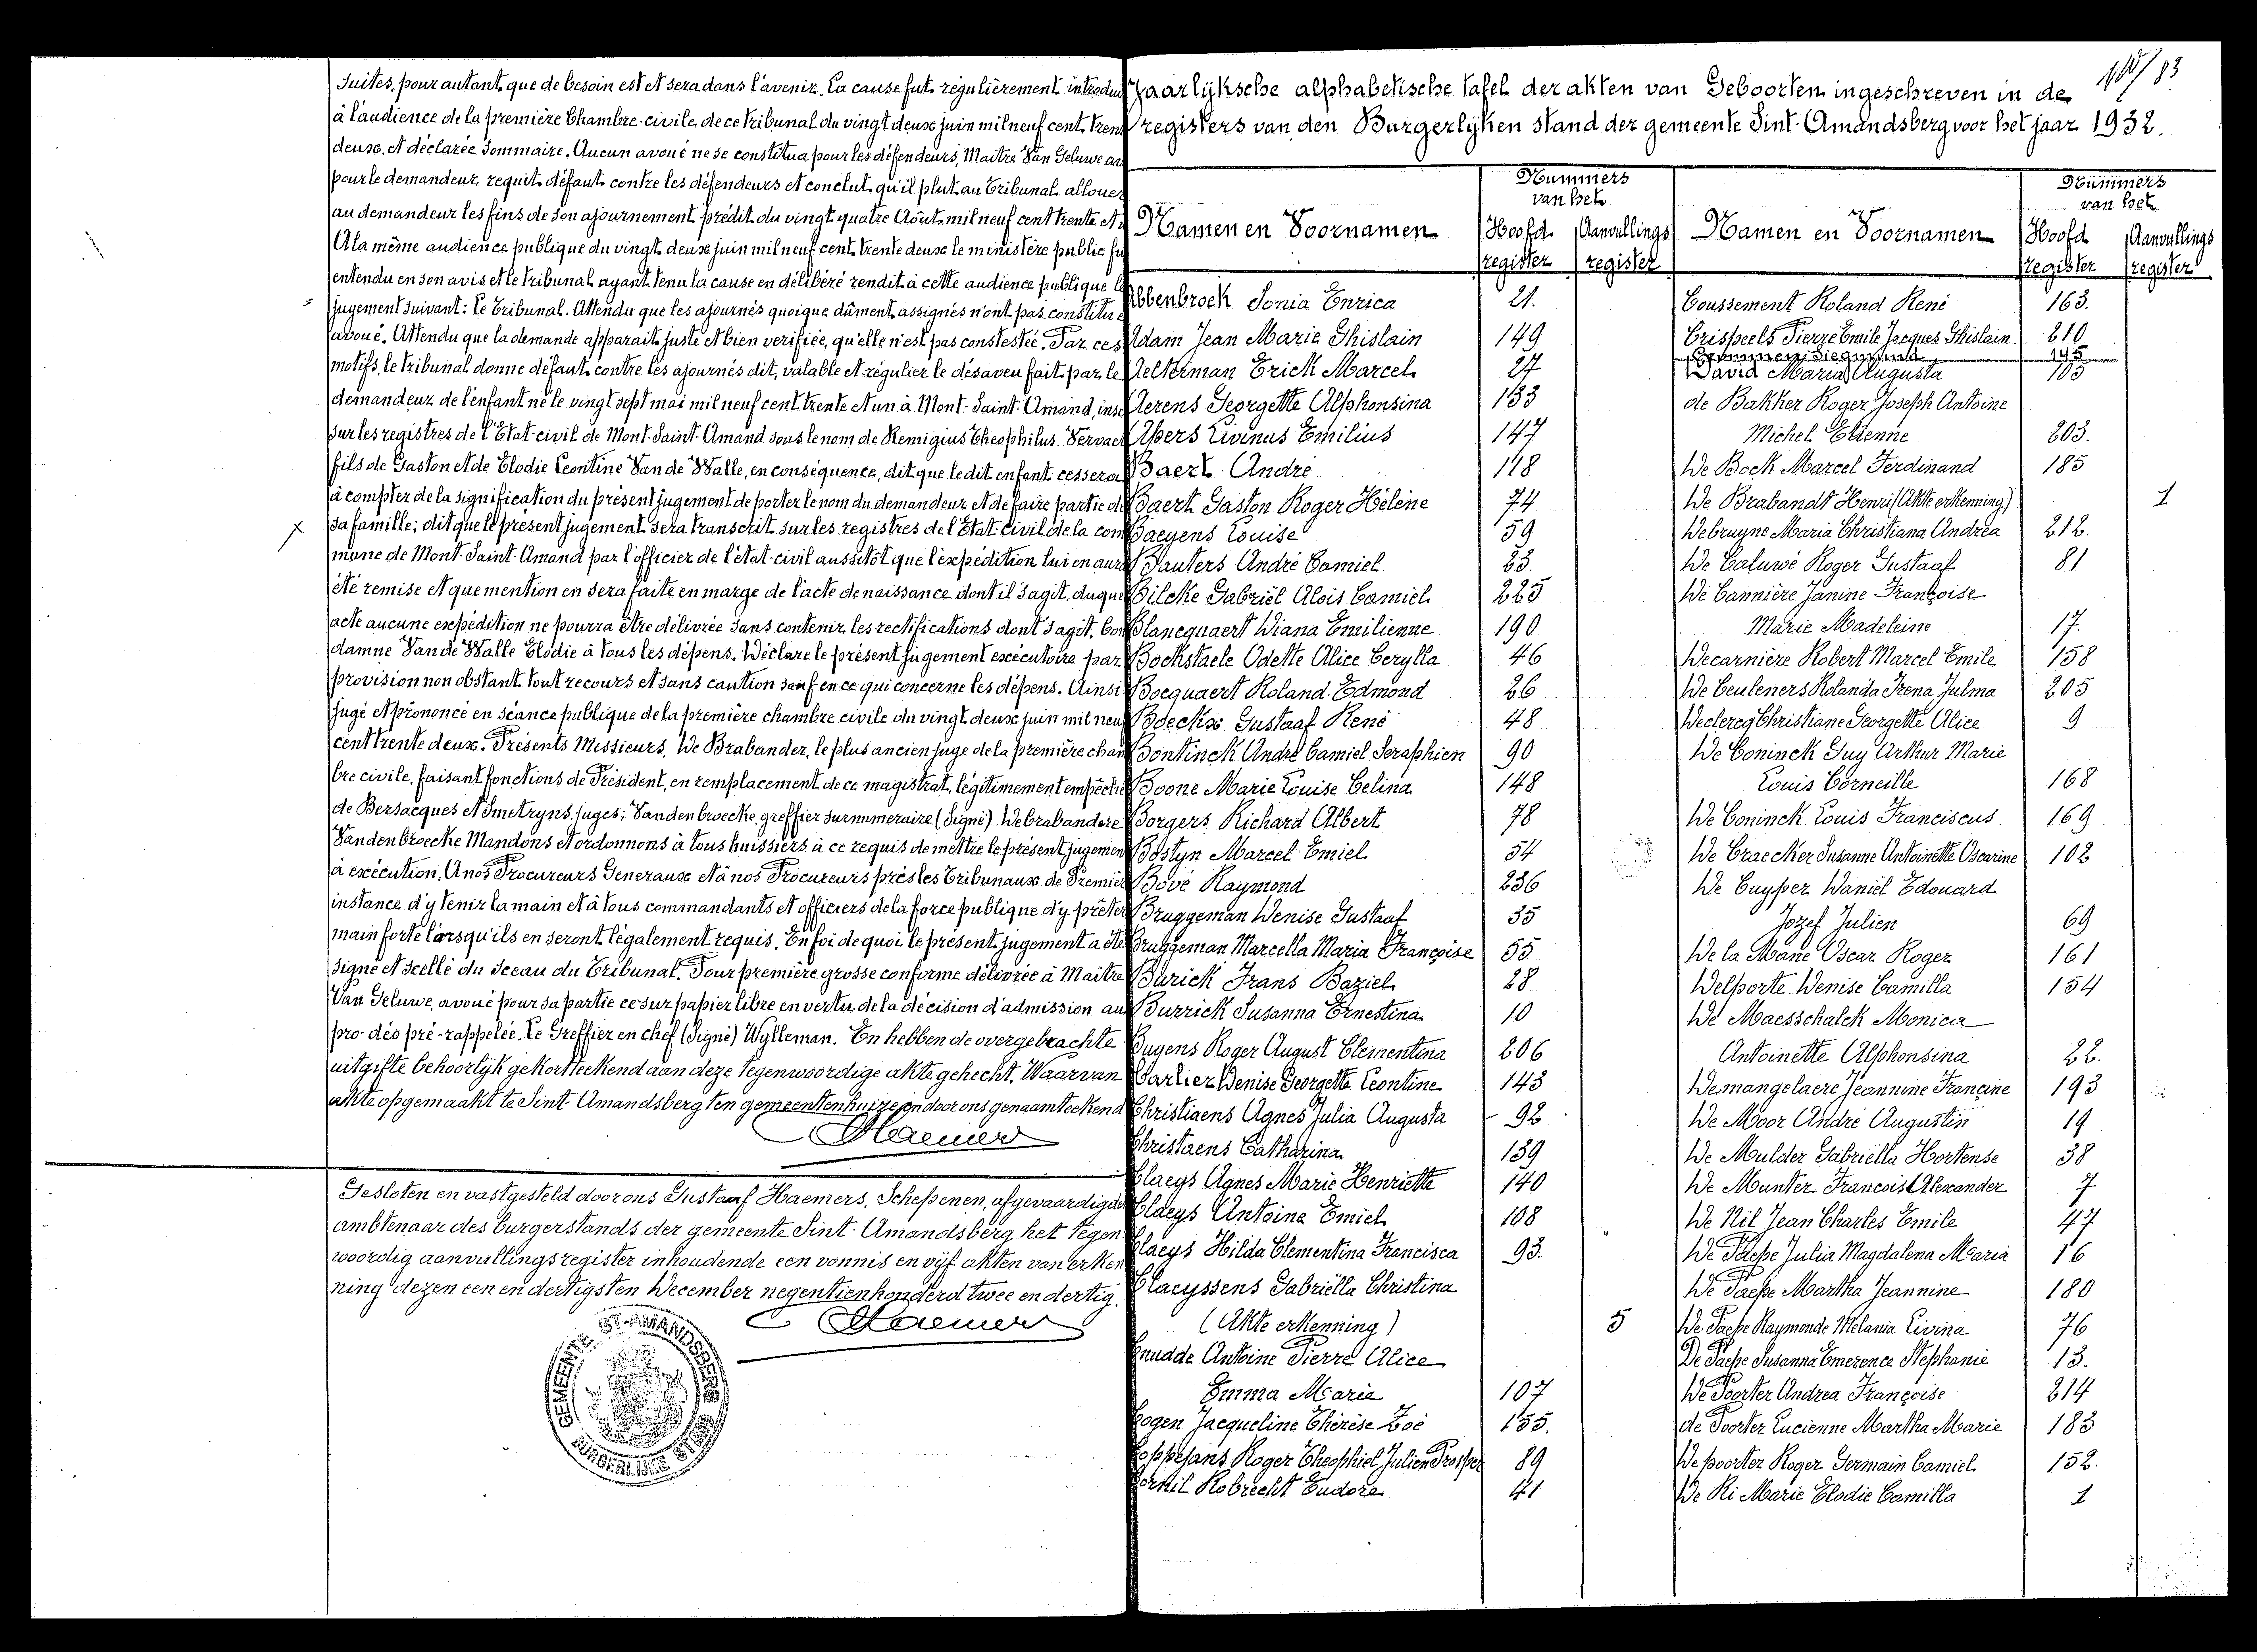 suites, pour autant que de besoin est et sera dans l'avenir. La cause fut régulièrement introdui
à l'audience de la première Chambre civile de ce tribunal du vingt deux juin mil neuf cent trente
deux, et déclarée sommaire. Aucun avoué ne se constitua pour les défendeurs, Maître Van Geluwe av
pour le demandeur requit défaut contre les défendeurs et conclut qu'il plut au Tribunal allouer
au demandeur les fins de son ajournement prédit du vingt quatre Août mil neuf cent trente et
A la même audience publique du vingt deux juin mil neuf cent trente deux le ministère public fu
entendu en son avis et le tribunal ayant tenu la cause en délibéré rendit à cette audience publique le
jugement suivant: Le Tribunal. Attendu que les ajournés quoique dûment assignés n'ont pas constitué
avoué. Attendu que la demande apparait juste et bien verifiée, qu'elle n'est pas constestée. Par ces
motifs, le tribunal donne défaut contre les ajournés dit, valable et régulier le désaveu fait par le
demandeur de l'enfant né le vingt sept mai mil neuf cent trente et un à Mont-Saint-Amand, insc
sur les registres de l'Etat-civil de Mont-Saint-Amand sous le nom de Remigius Theophilus Vervaet
fils de Gaston et de Elodie Leontine Van de Walle, en conséquence, dit que le dit enfant cessera
à compter de la signification du présent jugement de porter le nom du demandeur et de faire partie de
sa famille; dit que le présent jugement sera transcrit sur les registres de l'Etat Civil de la com
mune de Mont-Saint-Amand par l'officier de l'état-civil aussitôt que l'expédition lui en aura
été remise et que mention en sera faite en marge de l'acte de naissance dont il s'agit, duque
acte aucune expédition ne pourra être délivrée sans contenir les rectifications dont s'agit. Con
damne Van de Walle Elodie à tous les dépens. Déclare le présent jugement exécutoire par
provision non obstant tout recours et sans caution sauf en ce qui concerne les dépens. Ainsi
jugé et prononcé en séance publique de la première chambre civile du vingt deux juin mil neuf
cent trente deux. Présents Messieurs. De Brabander, le plus ancien juge de la première cham
bre civile, faisant fonctions de Président, en remplacement de ce magistrat, légitimement empêché
de Bersacques et Smetryns, juges; Vanden broecke, greffier surnumeraire (Signé) De brabandere
Vanden broecke Mandons et ordonnons à tous huissiers à ce requis de mettre le présent jugemen
à exécution. A nos Procureurs Generaux et à nos Procureurs près les Tribunaux de Premièr
instance d'y tenir la main et à tous commandants et officiers de la force publique d'y prêter
main forte lorsqu'ils en seront légalement requis. En foi de quoi le présent jugement a été
signé et scellé du sceau du Tribunal. Pour première grosse conforme délivrée à Maître
Van Geluwe, avoué pour sa partie ce sur papier libre en vertu de la décision d'admission au
pro-déo pré-rappelée. Le Greffier en chef (Signé) Wylleman. En hebben de overgebrachte
uitgifte behoorlijk gekortteekend aan deze tegenwoordige akte gehecht. Waarvan
akte opgemaakt te Sint-Amandsberg ten gemeentenhuize en door ons genaamteekend
Haemers
Gesloten en vastgesteld door ons Gustaaf Haemers, Schepenen, afgevaardigde
ambtenaar des burgerstands der gemeente Sint-Amandsberg het tegen
woordig aanvullingsregister inhoudende een vonnis en vijf akten van erken
ning dezen een en dertigsten December negentienhonderd twee en dertig.
Haemers
GEMEENTE ST-AMANDSBERG
BURGERLIJKE STAND
Jaarlijksche alphabetische tafel der akten van Geboorten ingeschreven in de
registers van den Burgerlijken stand der gemeente Sint-Amandsberg voor het jaar 1932.
Namen en Voornamen
Nummers van het
Hoofd register
Aanvullings register
Abbenbroek Sonia Enrica 21.
Adam Jean Marie Ghislain 149
Aelterman Erick Marcel 27
Aerens Georgette Alphonsina 133
Alpers Livinus Emilius 147
Baert André 118
Baert Gaston Roger Hélène 74
Baeyens Louise 59
Bauters André Camiel 23.
Bilcke Gabriël Aloïs Camiel 225
Blancquaert Diana Emilienne 190
Bockstaele Odette Alice Cerylla 46
Bocquaert Roland Edmond 26
Boeckx Gustaaf René 48
Bontinck André Camiel Seraphien 90
Boone Marie Louise Celina 148
Borgers Richard Albert 78
Bostyn Marcel Emiel 54
Bové Raymond 236
Bruggeman Denise Gustaaf 35
Bruggeman Marcella Maria Françoise 55
Burick Frans Baziel 28
Burrick Susanna Ernestina 10
Buyens Roger August Clementina 206
Carlier Denise Georgette Leontine 143
Christiaens Agnes Julia Augusta 92
Christaens Catharina 139
Claeys Agnes Marie Henriette 140
Claeys Antoine Emiel 108
Claeys Hilda Clementina Francisca 93.
Claeyssens Gabriëlla Christina
(Akte erkenning) 5
Cnudde Antoine Pierre Alice
Emma Marie 107
Cogen Jacqueline Thérèse Zoé 155.
Coppejans Roger Theophiel Julien Prosper 89
Cornil Robrecht Eudore 41
Namen en Voornamen
Nummers van het
Hoofd register
Aanvullings register
Coussement Roland René 163.
Crispeels Pierre Emile Jacques Ghislain 210
Crommen Siegmund 145
David Maria Augusta 105
de Bakker Roger Joseph Antoine
Michel Etienne 203.
De Bock Marcel Ferdinand 185
De Brabandt Henri (Akte erkenning) 1
Debruyne Maria Christiana Andréa 212.
De Caluwé Roger Gustaaf 81
De Cannière Janine Françoise
Marie Madeleine 17.
Decarnière Robert Marcel Emile 158
De Ceuleners Rolanda Irena Julma 205
Declercq Christiane Georgette Alice 9
De Coninck Guy Arthur Marie
Louis Corneille 168
De Coninck Louis Franciscus 169
De Craecker Susanne Antoinette Oscarine 102
De Cuyper Daniël Edouard
Jozef Julien 69
De la Mane Oscar Roger 161
Delporte Denise Camilla 154
De Maesschalck Monica
Antoinette Alphonsina 22.
Demangelaere Jeannine Francine 193
De Moor André Augustin 19
De Mulder Gabriëlla Hortense 38
De Munter François Alexander 7
De Nil Jean Charles Emile 47
De Paepe Julia Magdalena Maria 16
De Paepe Martha Jeannine 180
De Paepe Raymonde Melania Livina 76
De Paepe Susanna Emerence Stephanie 13.
De Poorter Andrea Françoise 214
de Poorter Lucienne Martha Marie 183
De poorter Roger Germain Camiel 152.
De Ri Marie Elodie Camilla 1